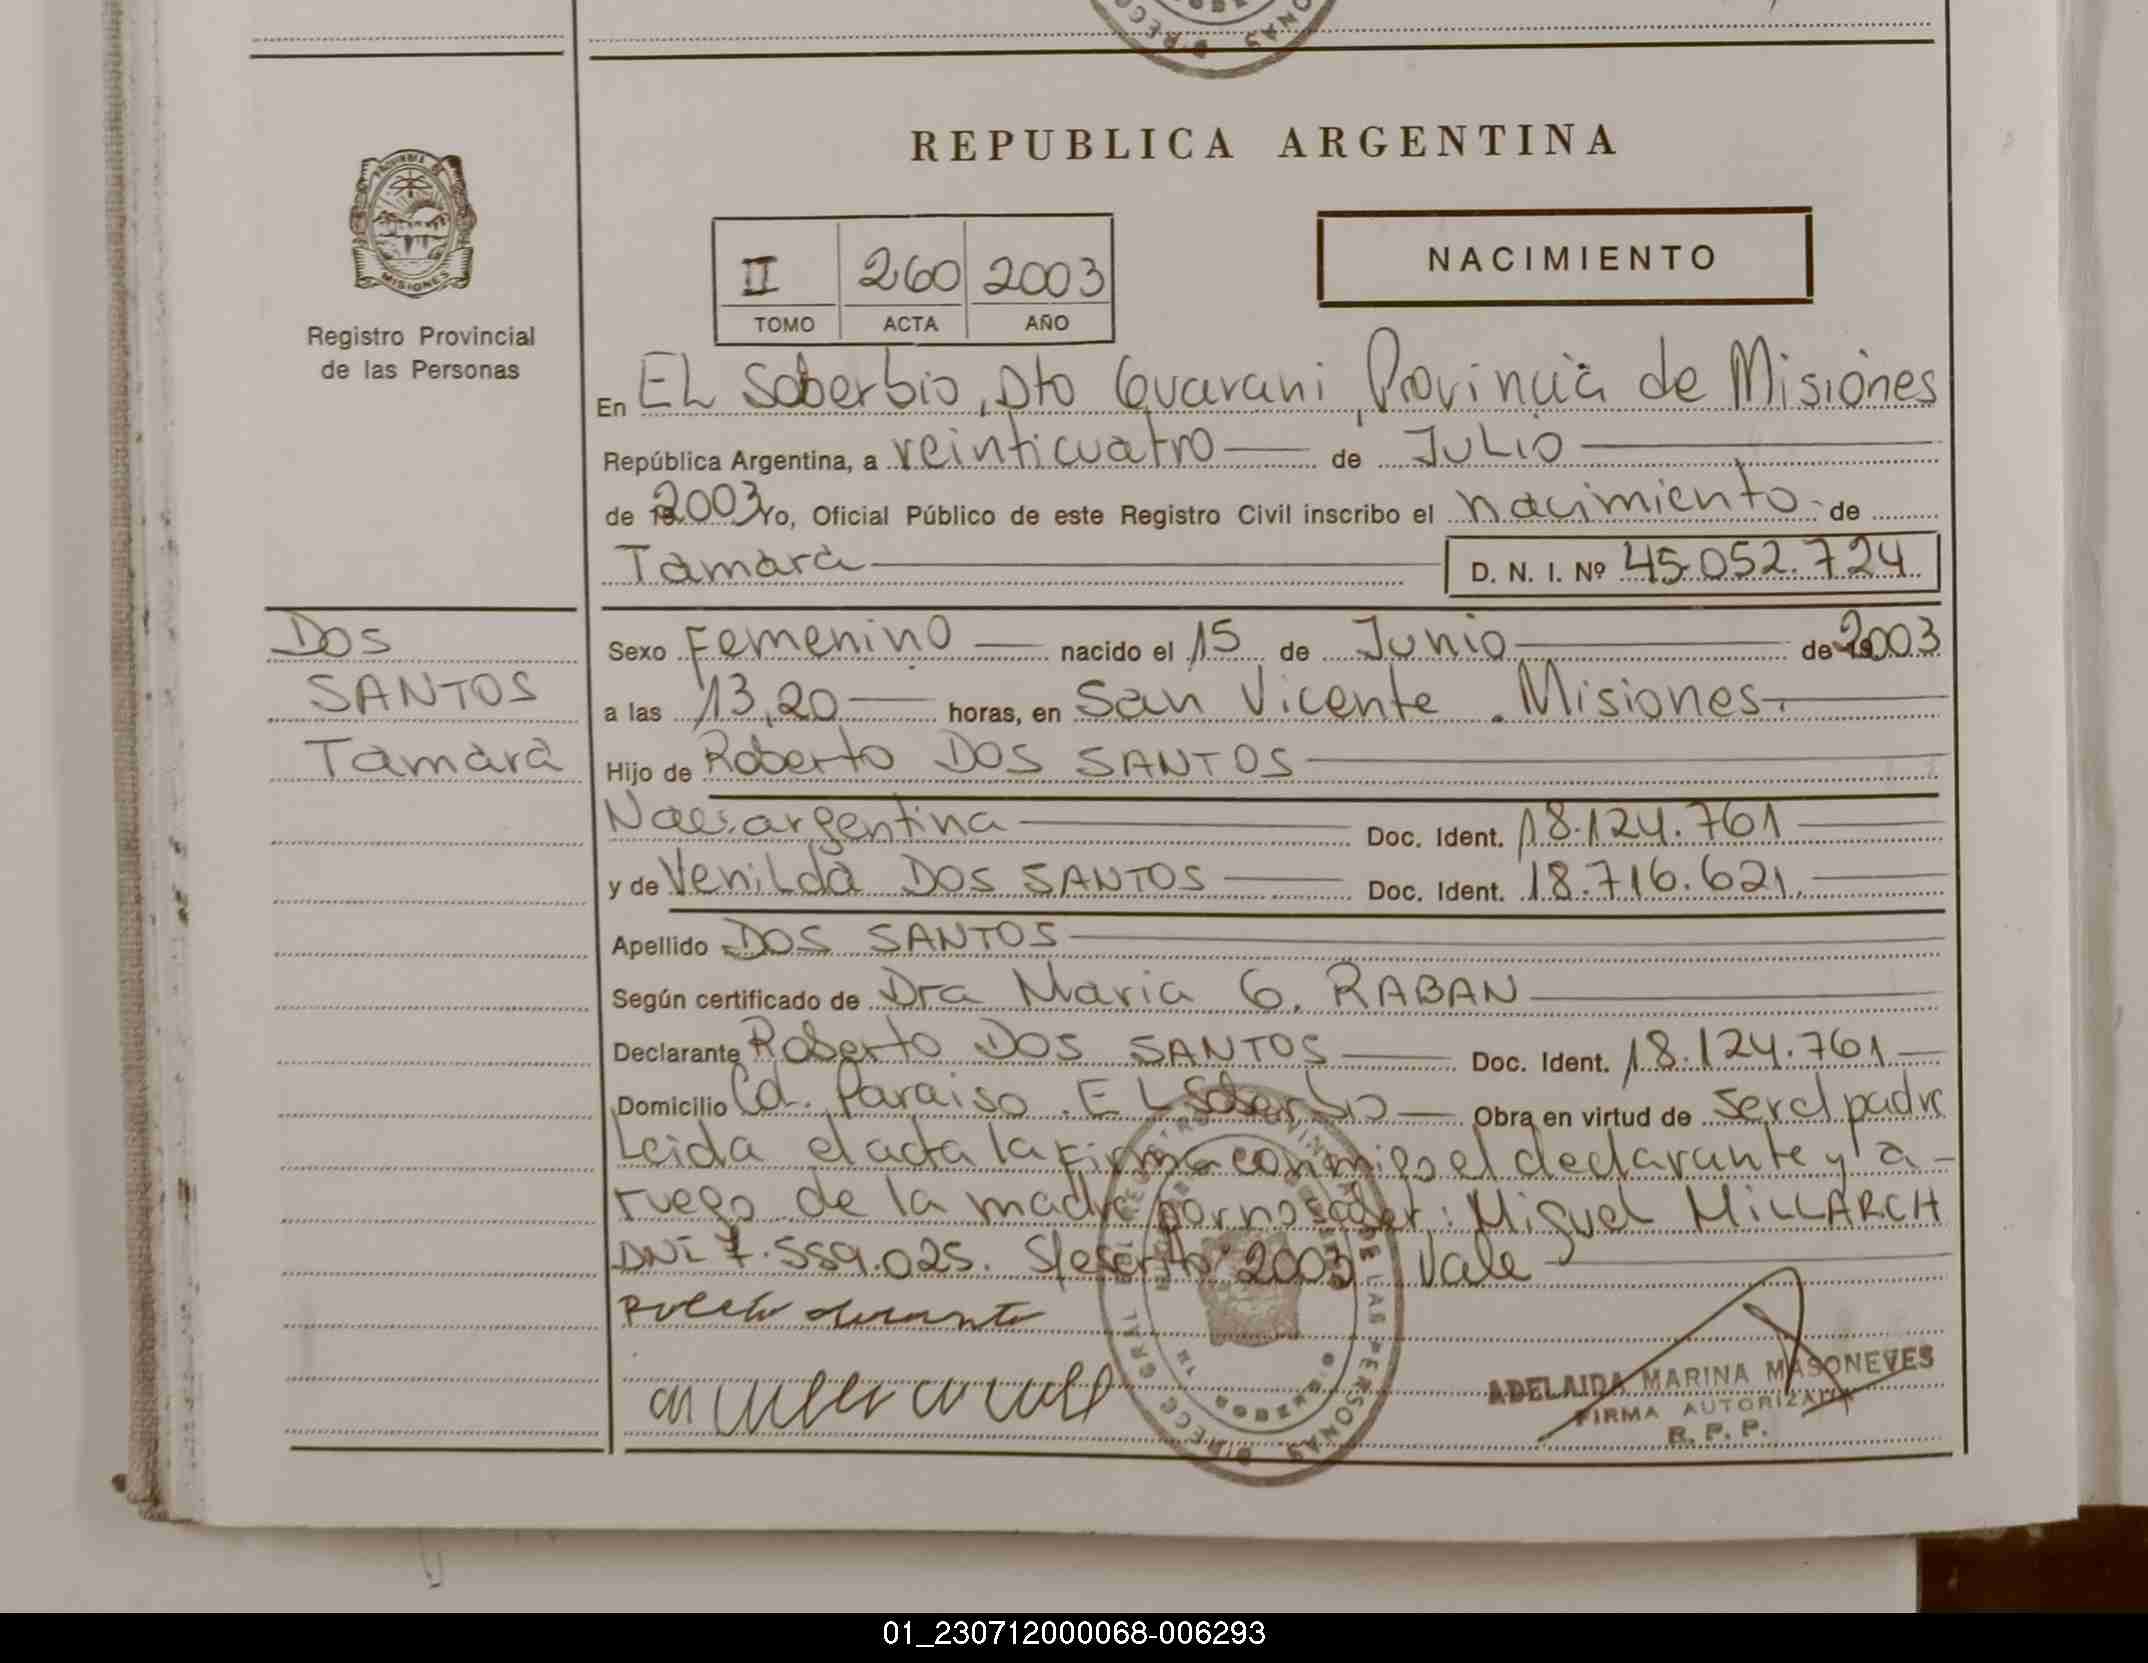 REPUBLICA ARGENTINA
PROVINCIA DE
MISIONES
Registro Provincial
de las Personas
II 260 2003
TOMO ACTA AÑO
NACIMIENTO
En EL Soberbio, Dto Guarani, Provincia de Misiones
República Argentina, a veinticuatro de JuLio
de 2003 Yo, Oficial Público de este Registro Civil inscribo el nacimiento de
Tamara D. N. I. Nº 45.052.724
DOS
SANTOS
Tamara
Sexo Femenino nacido el 15 de Junio de 2003
a las 13,20 horas, en San Vicente. Misiones.
Hijo de Roberto DOS SANTOS
Nac. argentina Doc. Ident. 18.124.761
y de Venilda DOS SANTOS Doc. Ident. 18.716.621.
Apellido DOS SANTOS
Según certificado de Dra Maria G. RABAN
Declarante Roberto DOS SANTOS Doc. Ident. 18.124.761
Domicilio Cd. Paraiso. EL Soberbio Obra en virtud de ser el padre
Leida el acta la firma conmigo el declarante y a
ruego de la madre por no saber: Miguel MiLLARCH
DNI 7.559.025. S/escrito: 2003 Vale
ADELAIDA MARINA MASONEVES
FIRMA AUTORIZADA
R. P. P.
01_230712000068-006293